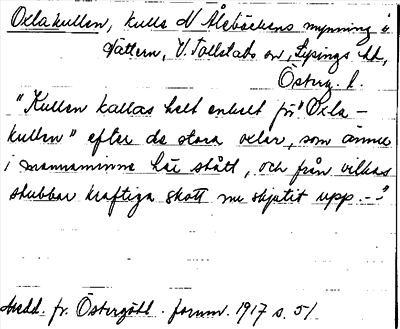 Oxlakullen, kulle N Ålebäckens mynning i
Vättern, V. Tollstads sn, Lysings hd,
Österg. l.
"Kullen kallas helt enkelt för "Oxla-
kullen" efter de stora oxlar, som ännu
i mannaminne här stått, och från vilkas
stubbar kraftiga skott nu skjutit upp.-"
Medd. fr. Östergötl. fornm. 1917 s. 51.